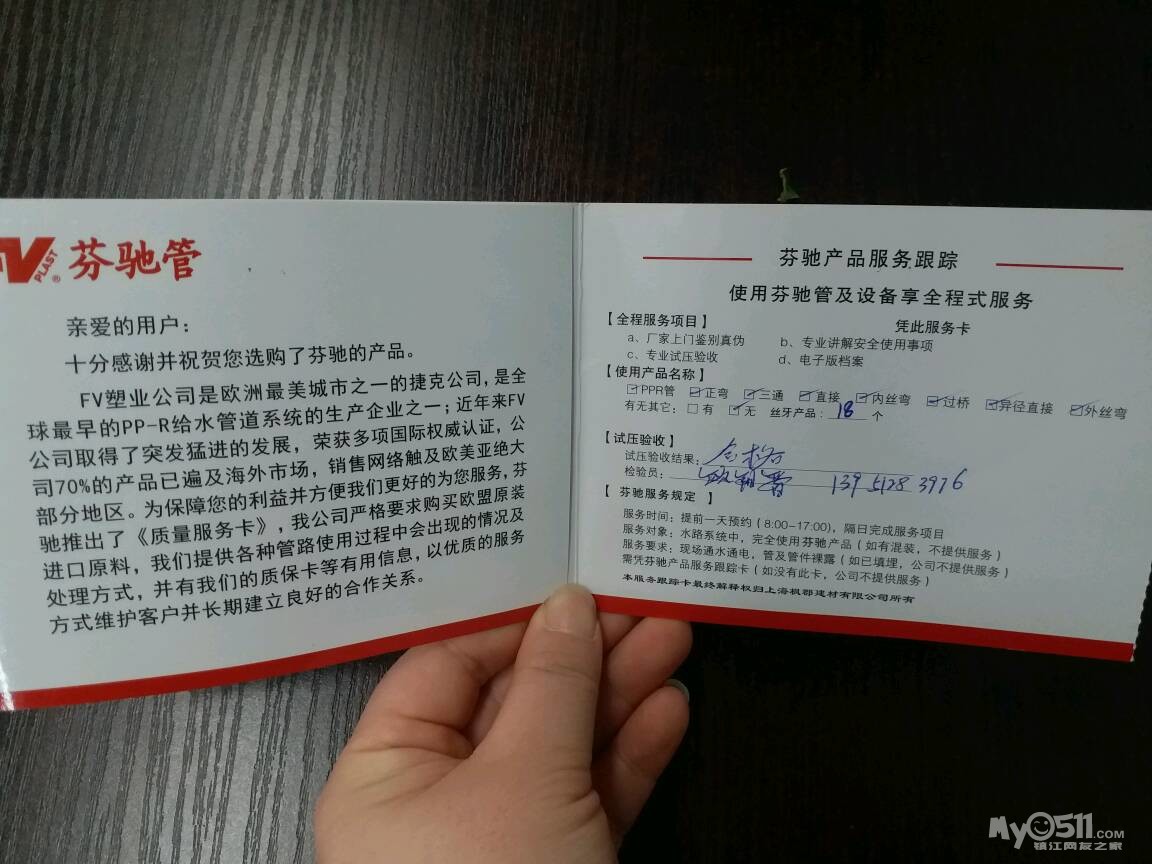 FV PLAST® 芬驰管
亲爱的用户：
十分感谢并祝贺您选购了芬驰的产品。
FV塑业公司是欧洲最美城市之一的捷克公司，是全
球最早的PP-R给水管道系统的生产企业之一；近年来FV
公司取得了突发猛进的发展，荣获多项国际权威认证，公
司70%的产品已遍及海外市场，销售网络触及欧美亚绝大
部分地区。为保障您的利益并方便我们更好的为您服务，芬
驰推出了《质量服务卡》，我公司严格要求购买欧盟原装
进口原料，我们提供各种管路使用过程中会出现的情况及
处理方式，并有我们的质保卡等有用信息，以优质的服务
方式维护客户并长期建立良好的合作关系。
芬驰产品服务跟踪
使用芬驰管及设备享全程式服务
【全程服务项目】 凭此服务卡
a、厂家上门鉴别真伪 b、专业讲解安全使用事项
c、专业试压验收 d、电子版档案
【使用产品名称】
☑PPR管 ☑正弯 ☑三通 ☑直接 ☑内丝弯 ☑过桥 ☑异径直接 ☑外丝弯
有无其它：□有 ☑无 丝牙产品：18个
【试压验收】
试压验收结果：合格
检验员： 139 5128 3976
【 芬驰服务规定 】
服务时间：提前一天预约（8:00-17:00），隔日完成服务项目
服务对象：水路系统中，完全使用芬驰产品（如有混装，不提供服务）
服务要求：现场通水通电，管及管件裸露（如已填埋，公司不提供服务）
需凭芬驰产品服务跟踪卡（如没有此卡，公司不提供服务）
本服务跟踪卡最终解释权归上海枫郡建材有限公司所有
My0511.COM
镇江网友之家